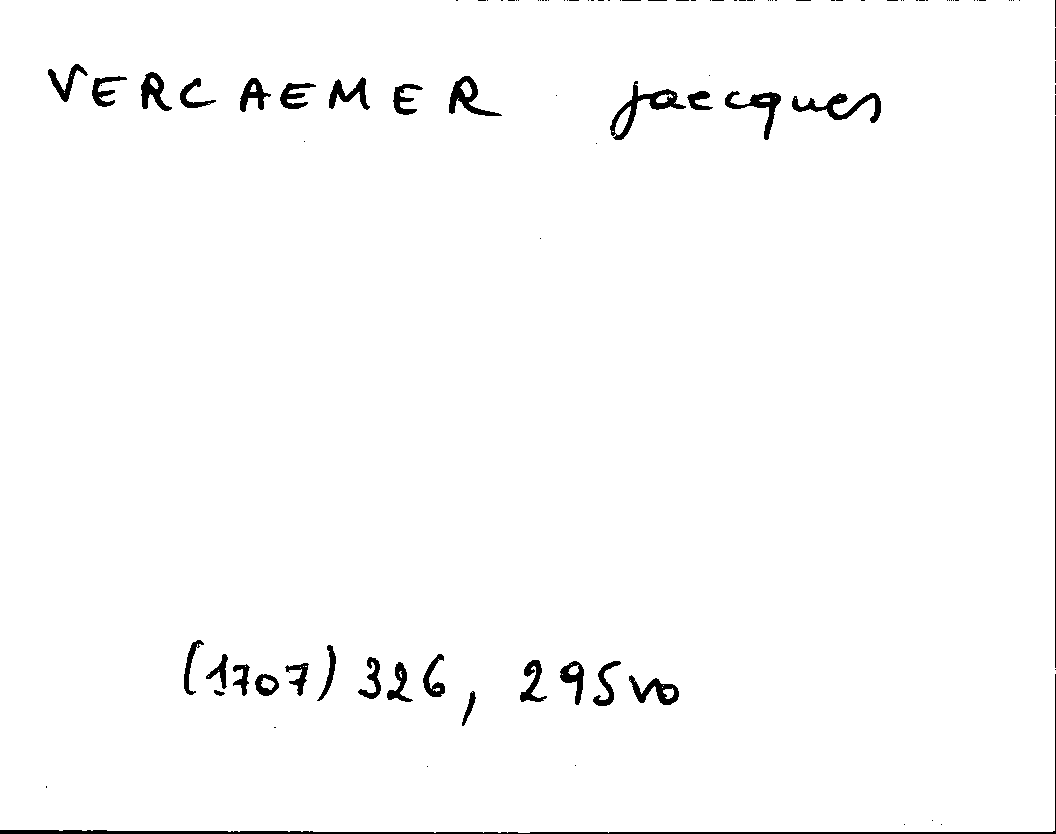 VERCAEMER Jaecques
(1707) 326, 295vo